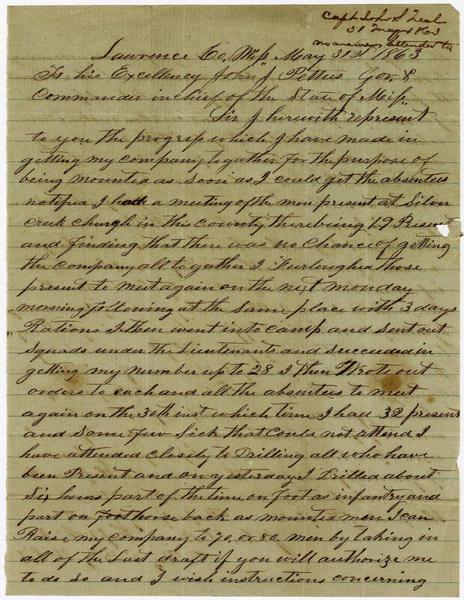 Capt John S Teal
31 May 1863
no answer attended to
Lawrence Co, Miss May 31st 1863
To his Excellency John J Pettus Gov. &
Commander in chief of the State of Miss.
Sir I herewith represent
to you the progress which I have made in
getting my Company together for the purpose of
being mounted as soon as I could get the absentees
notified I had a meeting of the men present at Silver
Creek church in this County there being 19 Present
and finding that there was no Chance of getting
the company all to gather I Furloughed those
present to meet again on the next Monday
morning following at the same place with 3 days
Rations I then went into camp and sent out
Squads under the Lieutenants and Succeeded in
getting my number up to 28 I then Wrote out
orders to each and all the absentees to meet
again on the 30th inst which time I had 32 present
and Some few Sick that Could not attend I
have attended closely to Drilling all who have
been Present and on yesterday I Drilled about
Six hours part of the time on foot as infantry and
part on horse back as mounted men I can
Raise my Company to 70, or 80, men by taking in
all of the Last draft if you will authorize me
to do so and I wish instructions concerning